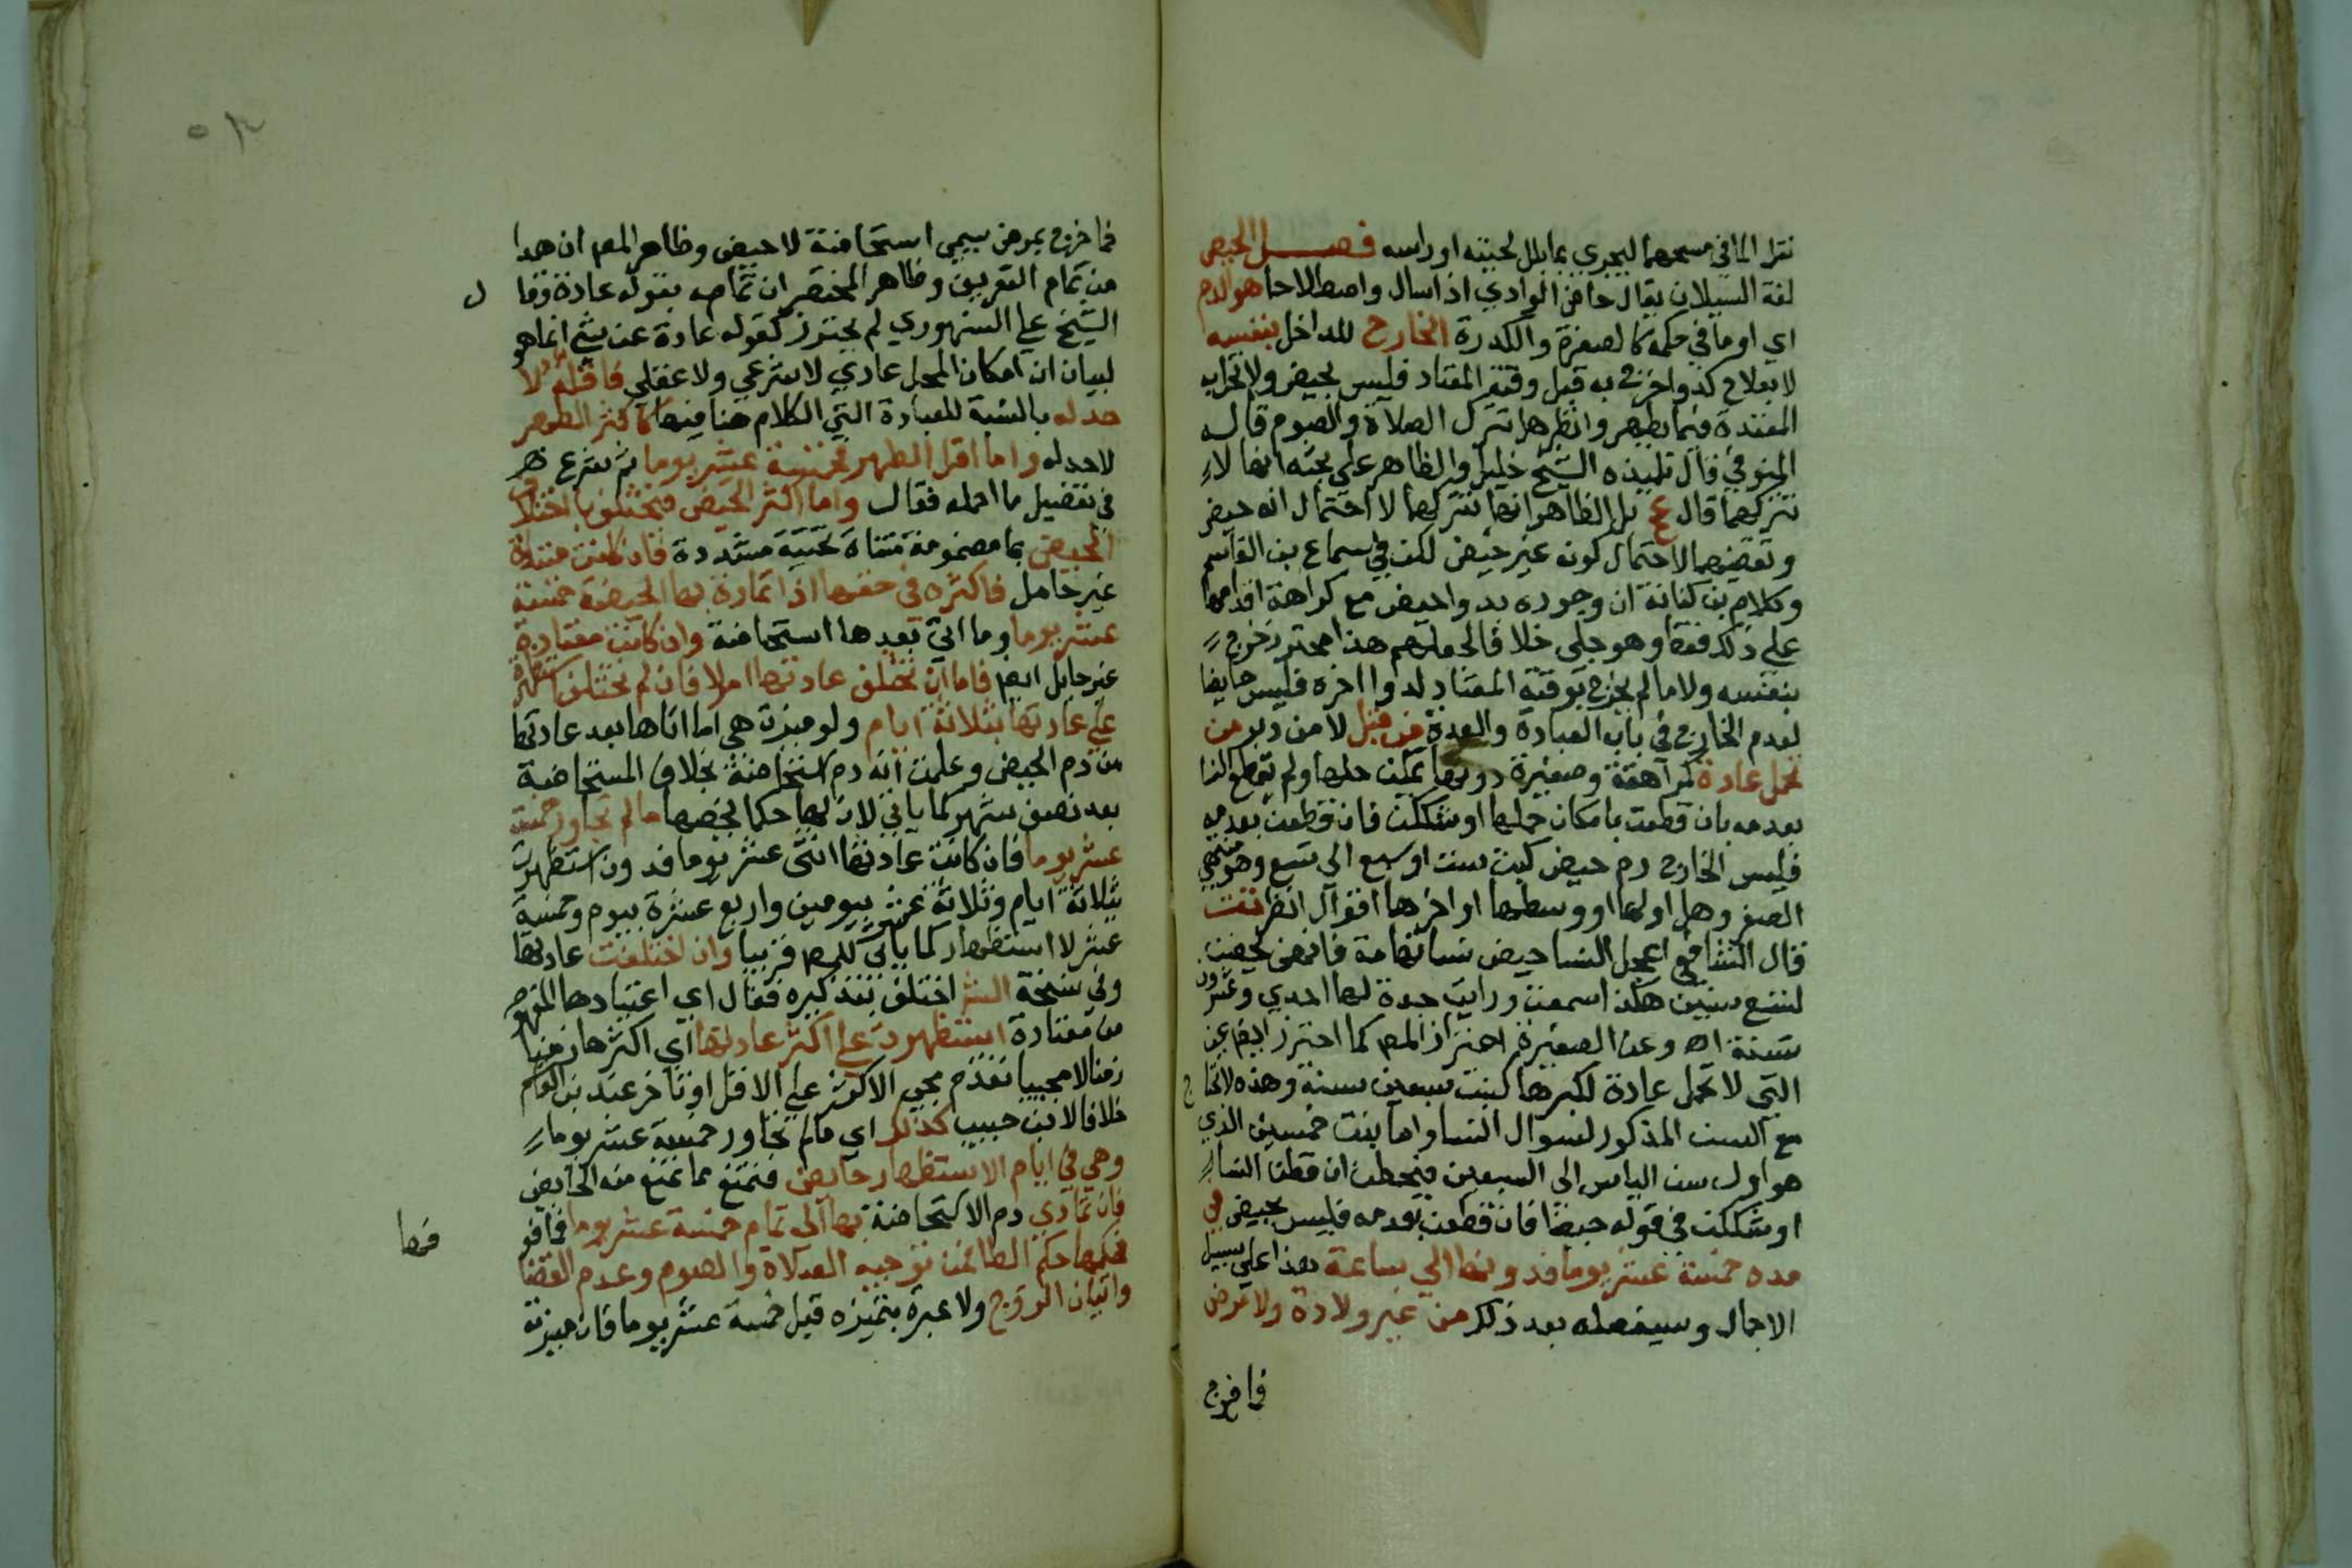 نقل الما في مسحهما ليجري بما بلل لحيته او راسه فصل الحيض
لغة السيلان يقال حاض الوادي اذا سال واصطلاحا هو الدم
اي او ما في حكمه كالصفرة والكدرة الخارج للداخل بنفسه
لا بعلاج كدوا خرج به قبل وقته المعتاد فليس بحيض ولا تحل به
المعتدة فيما يظهر وانظر هل تترك الصلاة والصوم قال
المنوفي قال تلميذه الشيخ خليل والظاهر علي بحثه انها لا
تتركهما قال عج بل الظاهر انها تتركهما لاحتمال انه حيض
وتقضيهما لاحتمال كونه غير حيض لكن في سماع بن القاسم
وكلام بن كنانة ان وجوده بدوا حيض مع كراهة اقدامها
علي ذلك فقط وهو جلي خلافا لحملهم هذا محترز خروج
بنفسه ولا ما لم يخرج بوقته المعتاد لدوا اخره فليس حايضا
لعدم الخارج في باب العبادة والعدة من قبل لا من دبر من
تحمل عادة كمراهقة وصغيرة دونها يمكن حملها ولم تقطع النسا
بعدمه بان قطعت بامكان حملها او شككت فان قطعت بعدمه
فليس الخارج دم حيض كبنت ست او سبع الي تسع وهو منتهي
الصغر وهل اولها او وسطها او اخرها اقوال انظر تت
قال الشافعي اعجل النسا حيض نسا تهامة فانهن يحضن
لتسع سنين هكذا سمعت ورايت جدة لها احدي وعشرون
سنة اه وعن الصغيرة احترز المص كما احترز ايضا عن
التي لا تحمل عادة لكبرها كبنت سبعين سنة وهذه لا تحتاج
مع السن المذكور لسوال النسا واما بنت خمسين الذي
هو اول سن الياس الي السبعين فيحيض ان قطن النسا
او شككت في قوله حيضا فان قطعن بعدمه فليس بحيض في
مدة خمسة عشر يوما فدونها الي ساعة هذا علي سبيل
الاجمال وسيفصله بعد ذلك من غير ولادة ولا مرض
فما خرج
٥٣
فما خرج بمرض سمي استحاضة لا حيض وظاهر المص ان هذا
من تمام التعريف وظاهر المختصر ان تمامه بقوله عادة وقال
الشيخ علي السنهوري لم يحترز كقوله عادة عن شي انما هو
لبيان ان امكان الحمل عادي لا شرعي ولا عقلي فاقله لا
حد له بالنسبة للعبادة التي الكلام هنا فيها كاكثر الطهر
لا حد له واما اقل الطهر فخمسة عشر يوما ثم شرع
في تفصيل ما اجمله فقال واما اكثر الحيض فيختلف باختلاف
الحيض بما مضمومة مثناة تحتية مشددة فان كانت مبتداة
غير حامل فاكثره في حقها اذا تمادي بها الحيضة خمسة
عشر يوما وما اتي بعدها استحاضة وان كانت معتادة
غير حامل ايضا فاما ان تختلف عادتها ام لا فان لم تختلف استظهرت
علي عادتها بثلاثة ايام ولو ميزت هي اما اتاها بعد عادتها
من دم الحيض وعلمت انه دم استحاضة بخلاف المستحاضة
بعد نصف شهر كما ياتي لان لها حكما يخصها ما لم تجاوز خمسة
عشر يوما فان كانت عادتها اثني عشر يوما فدون استظهرت
بثلاثة ايام وثلاثة عشر بيومين واربع عشرة بيوم وخمسة
عشر لا استظهار كما ياتي للمص قريبا وان اختلفت عادتها
وفي نسخة الشر اختلف بتذكيره فقال اي اعتيادها المفهوم
من معتادة استظهرت علي اكثر عادتها اي اكثرها زمنا
زمنا لا مجييا تقدم مجي الاكثر علي الاقل او تاخر عند بن القاسم
خلافا لابن حبيب كذلك اي ما لم تجاوز خمسة عشر يوما
وهي في ايام الاستظهار حايض فتمنع مما تمنع منه الحايض
فان تمادي دم الاستحاضة بها الي تمام خمسة عشر يوما فما فو
فحكمها حكم الطاهر في توجيه الصلاة والصوم وعدم القضا
واتيان الزوج ولا عبرة بتميزه قبل خمسة عشر يوما فان ميزت
فمها